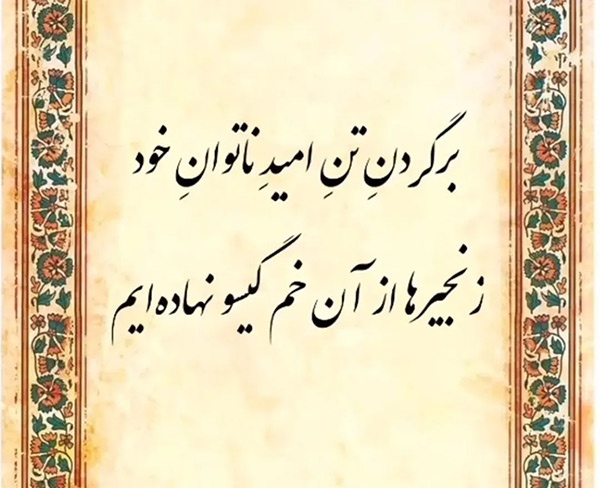 برگردنِ تنِ امیدِ ناتوانِ خود
زنجیرها از آن خم گیسو نهاده‌ایم